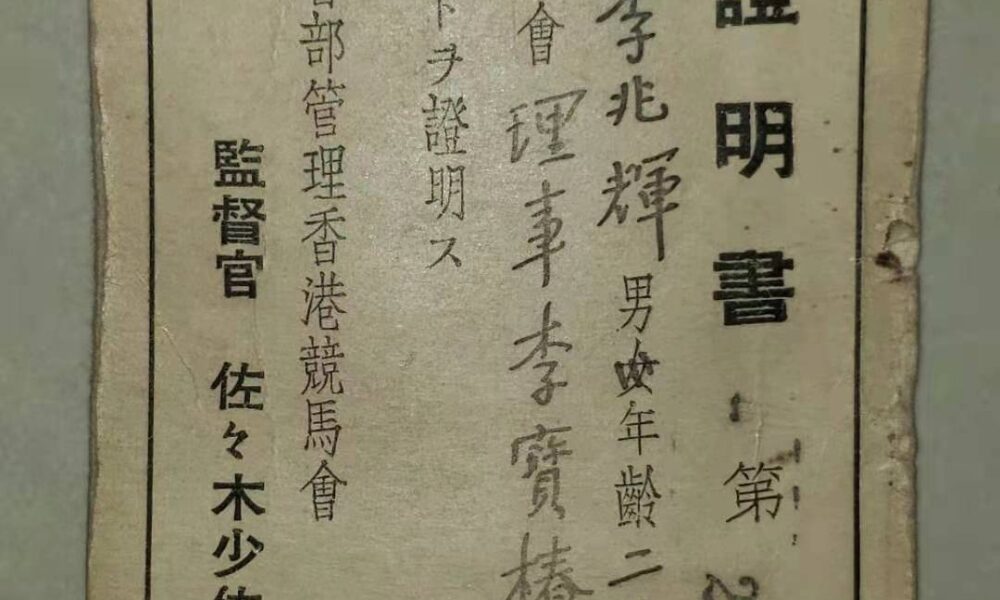 證明書 第
李兆輝 男女年齡二
會 理事李寶椿
ヲ證明ス
部管理香港競馬會
監督官 佐々木少佐